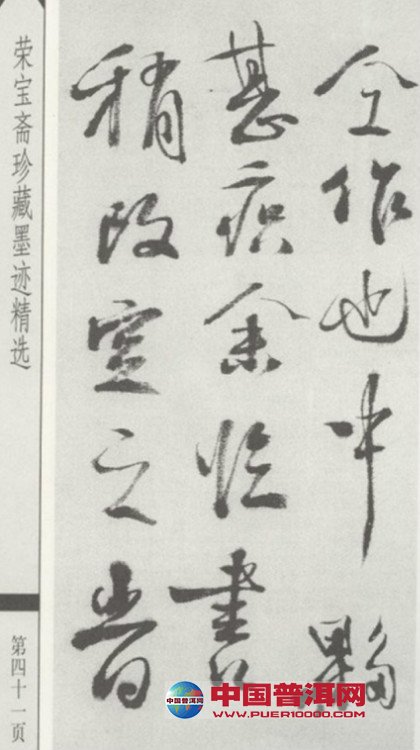 仝作也中夥
甚余临書
稍改定之
荣宝斋珍藏墨迹精选
第四十一页
中国普洱网
WWW.PUER10000.COM